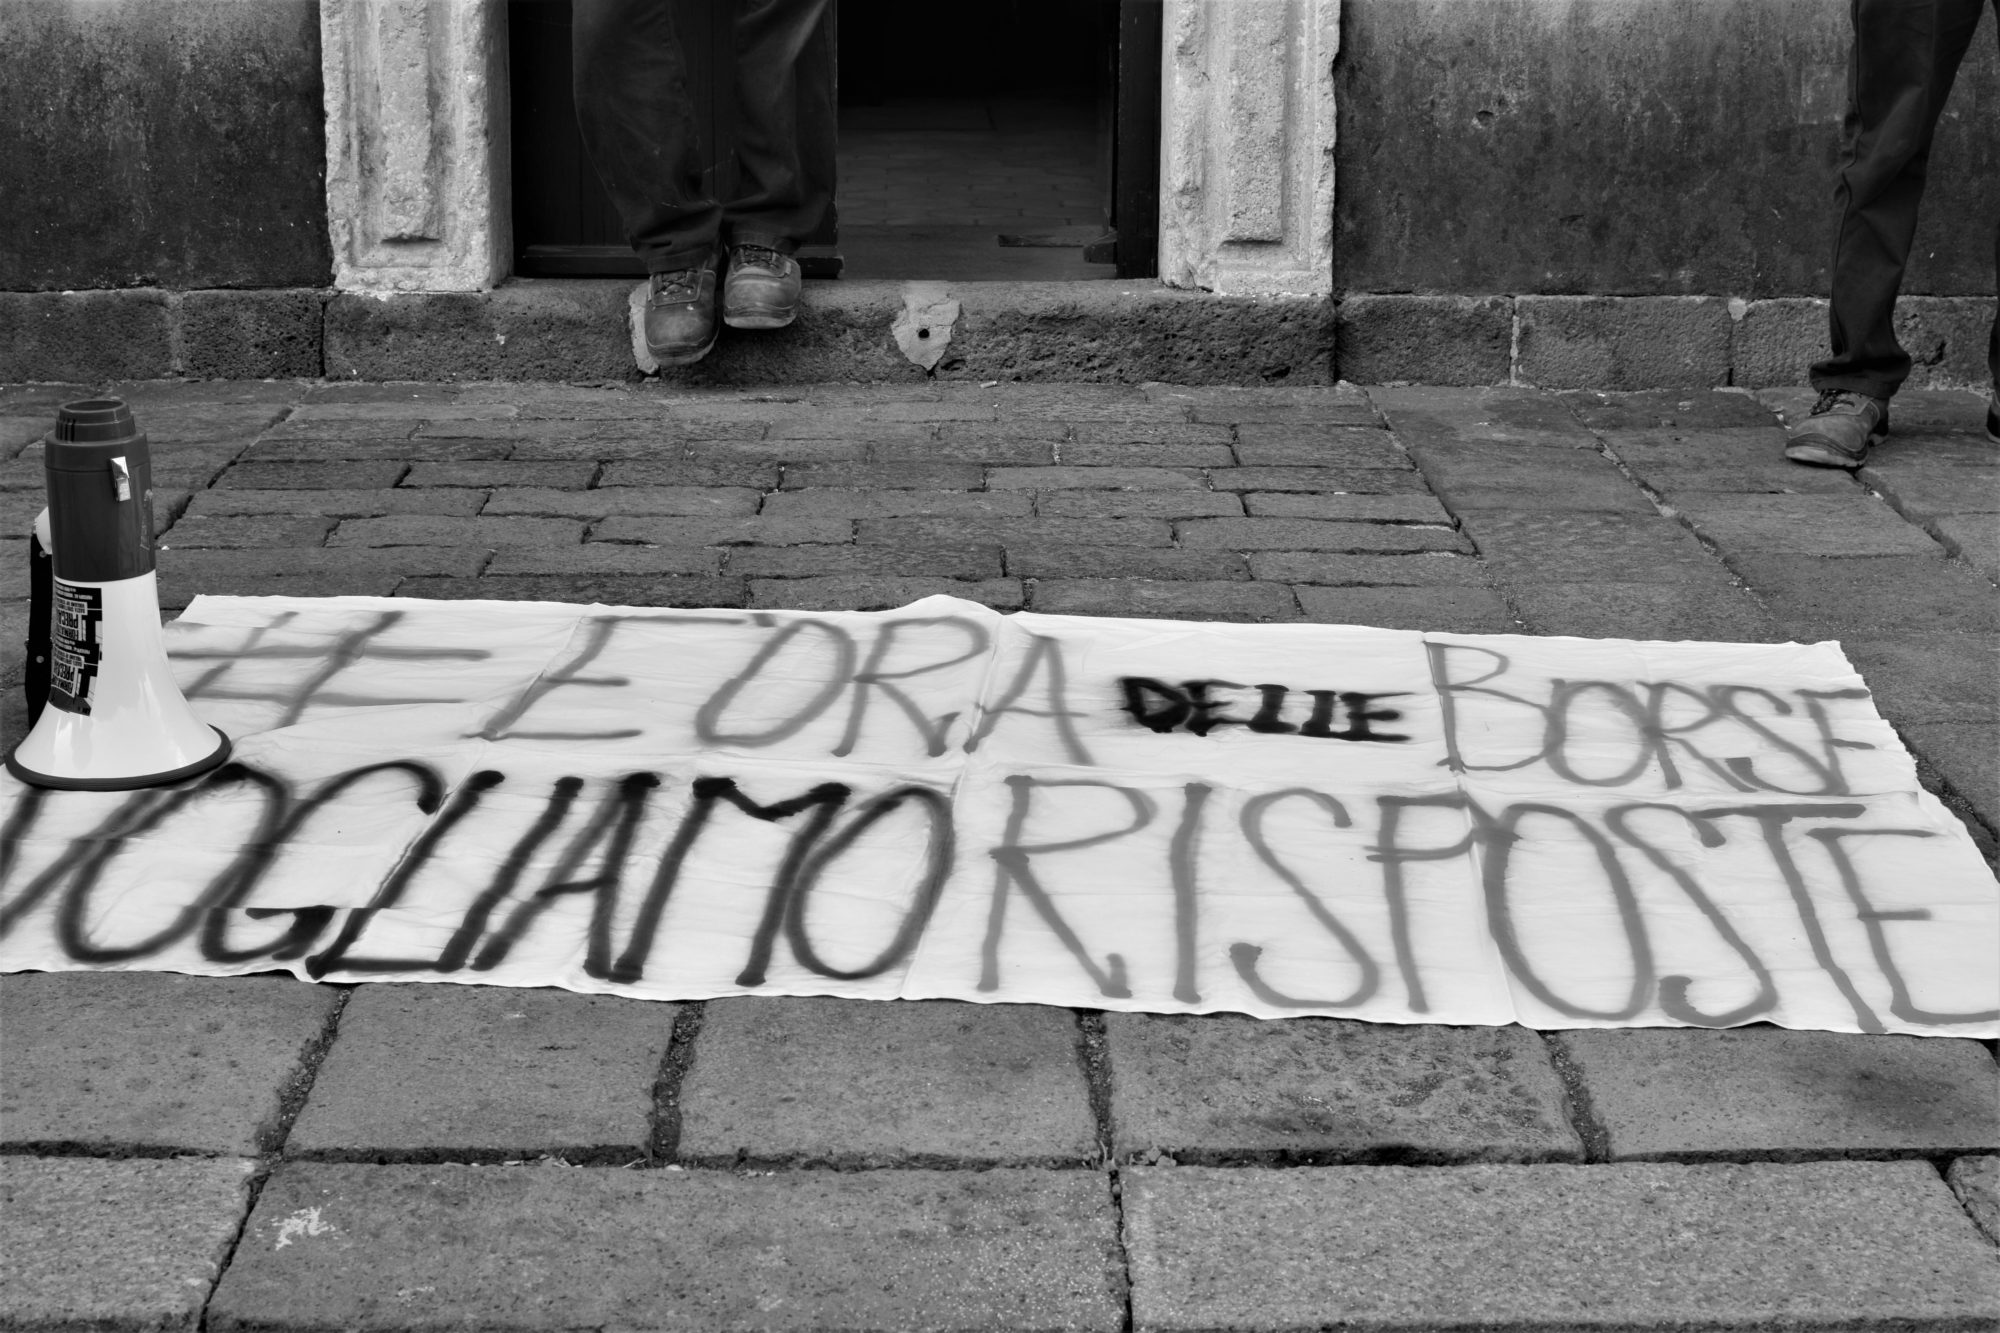 #E'ORA DELLE BORSE
VOGLIAMO RISPOSTE